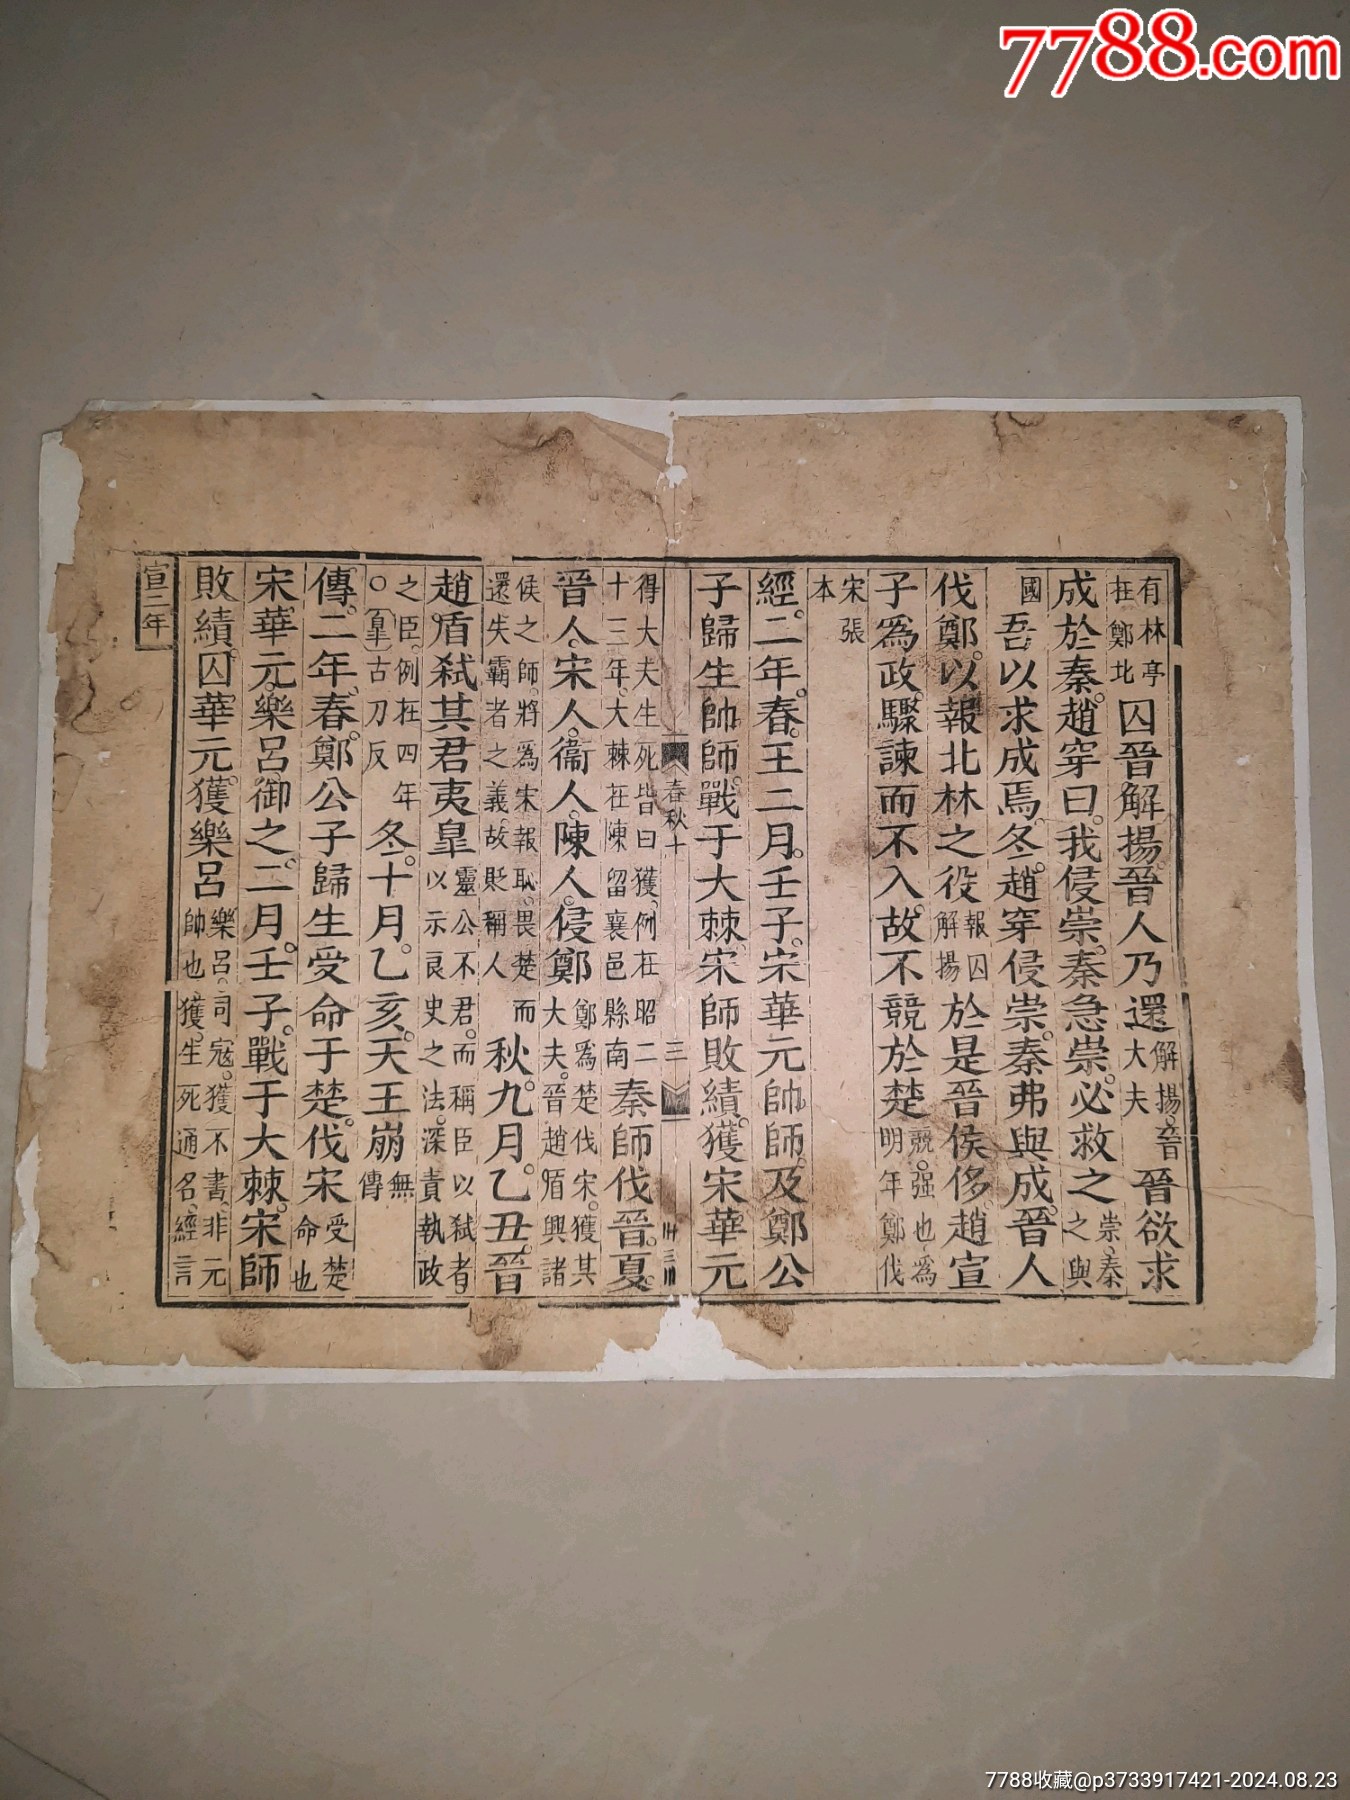 7788.com
有林亭在鄭北囚晉解揚。晉人乃還解揚。晉大夫晉欲求
成於秦。趙穿曰。我侵崇。秦急崇。必救之崇。秦之與
國吾以求成焉。冬。趙穿侵崇。秦弗與成。晉人
伐鄭。以報北林之役報囚解揚於是晉侯侈。趙宣
子爲政。驟諫而不入。故不競於楚競。强也爲明年鄭伐
宋張本
經。二年。春。王二月。壬子。宋華元帥師。及鄭公
子歸生帥師。戰于大棘。宋師敗績。獲宋華元
春秋十 三
得大夫生死皆曰獲。例在昭二十三年。大棘在陳留襄邑縣南秦師伐晉。夏。
晉人。宋人。衞人。陳人。侵鄭鄭爲楚伐宋。獲其大夫。晉趙盾興諸
侯之師。將爲宋報恥。畏楚而還失霸者之義。故貶稱人秋。九月。乙丑。晉
趙盾弑其君夷臯靈公不君。而稱臣以弑者。以示良史之法。深責執政
之臣。例在四年○臯古刀反冬。十月。乙亥。天王崩無傳
傳。二年。春。鄭公子歸生受命于楚。伐宋受楚命也
宋華元。樂呂御之。二月。壬子。戰于大棘。宋師
敗績。囚華元。獲樂呂樂呂。司寇。獲不書。非元帥也。獲。生死通名。經言
宣二年
7788收藏@p3733917421-2024.08.23